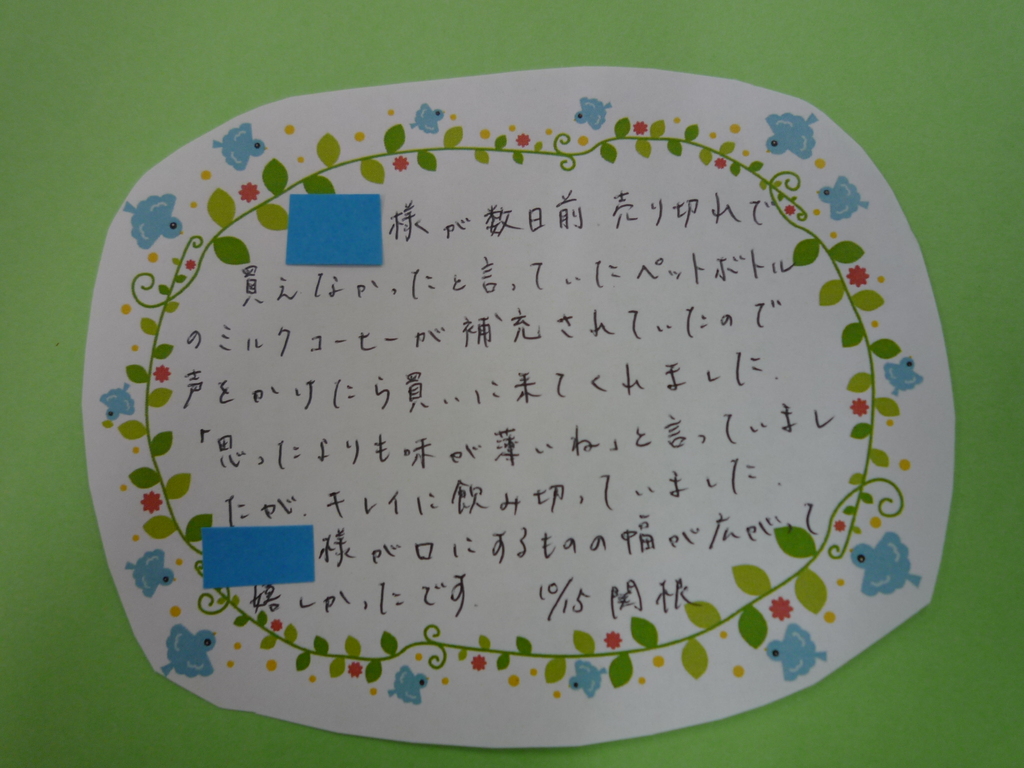 様が数日前、売り切れで
買えなかったと言っていたペットボトル
のミルクコーヒーが補充されていたので
声をかけたら買いに来てくれました。
「思ったよりも味が薄いね」と言っていまし
たが、キレイに飲み切っていました。
様が口にするものの幅が広がって
嬉しかったです。 10/15 関根